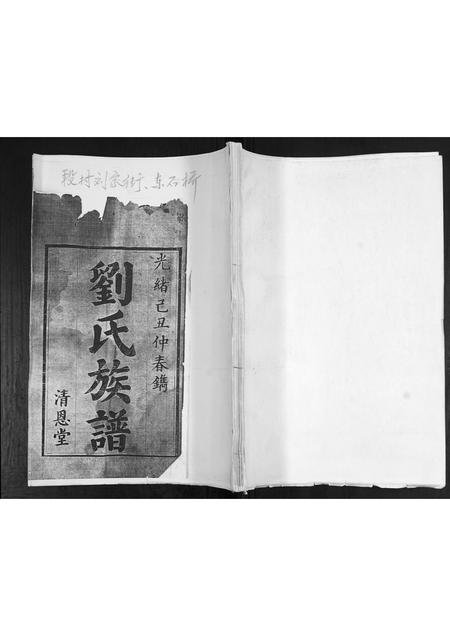 段村刘家街、东石桥
光緒己丑仲春鐫
劉氏族譜
清恩堂